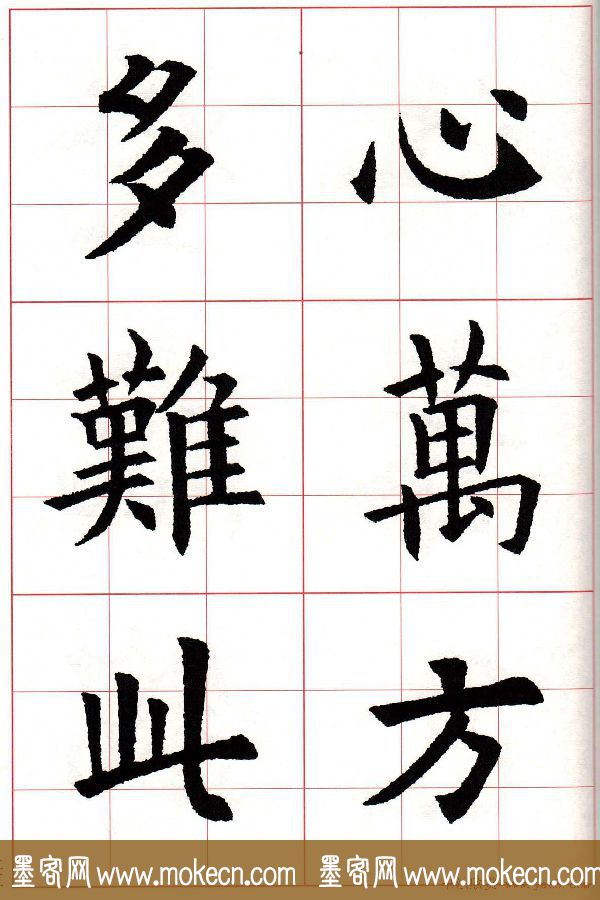 心萬方
多難此
墨客网 www.mokecn.com 墨客网 www.mokecn.com